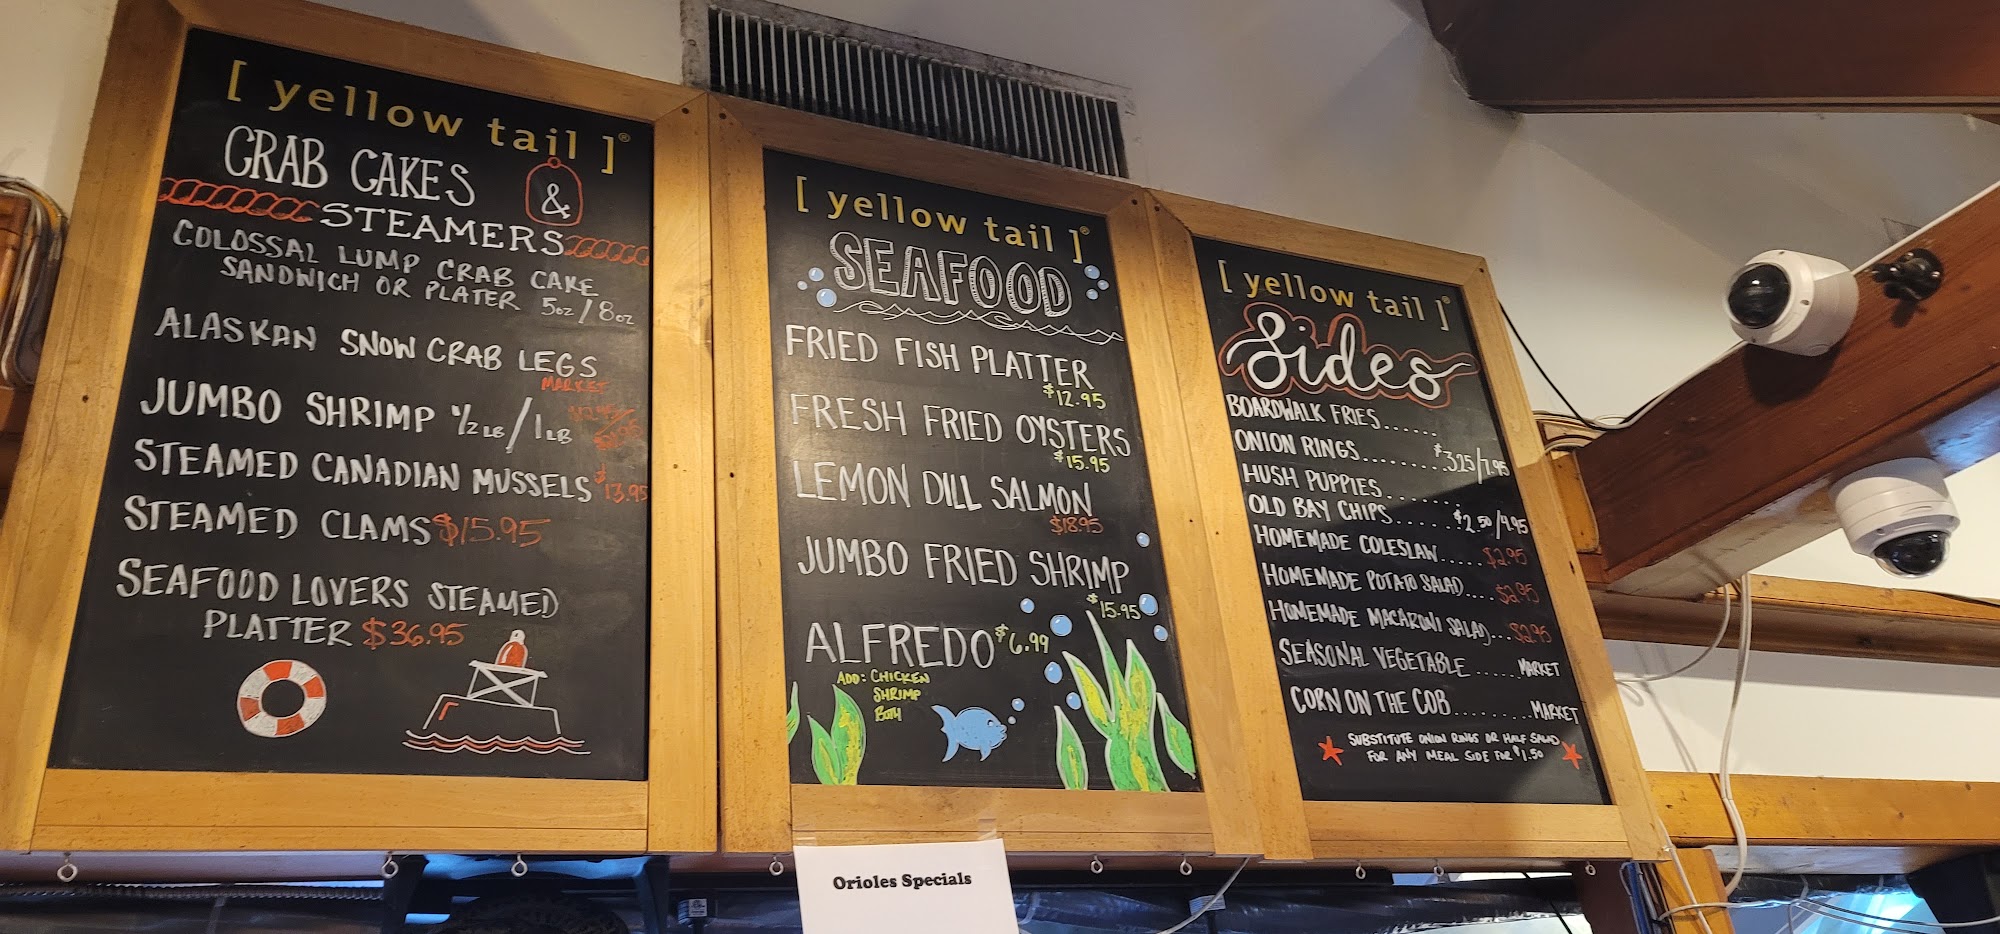 [ yellow tail ]®
CRAB CAKES &
STEAMERS
COLOSSAL LUMP CRAB CAKE
SANDWICH OR PLATER 5oz/8oz
ALASKAN SNOW CRAB LEGS
MARKET
JUMBO SHRIMP 1/2 LB/1 LB
STEAMED CANADIAN MUSSELS $13.95
STEAMED CLAMS $15.95
SEAFOOD LOVERS STEAMED
PLATTER $36.95
[ yellow tail ]®
SEAFOOD
FRIED FISH PLATTER
$12.95
FRESH FRIED OYSTERS
$15.95
LEMON DILL SALMON
$18.95
JUMBO FRIED SHRIMP
$15.95
ALFREDO $6.99
ADD: CHICKEN
SHRIMP
BOTH
Orioles Specials
[ yellow tail ]®
Sides
BOARDWALK FRIES......
ONION RINGS.........$3.25/7.95
HUSH PUPPIES.......
OLD BAY CHIPS......$2.50/4.95
HOMEMADE COLESLAW....$2.95
HOMEMADE POTATO SALAD....$2.95
HOMEMADE MACARONI SALAD...$2.95
SEASONAL VEGETABLE......MARKET
CORN ON THE COB.........MARKET
SUBSTITUTE ONION RINGS OR HALF SALAD
FOR ANY MEAL SIDE FOR $1.50